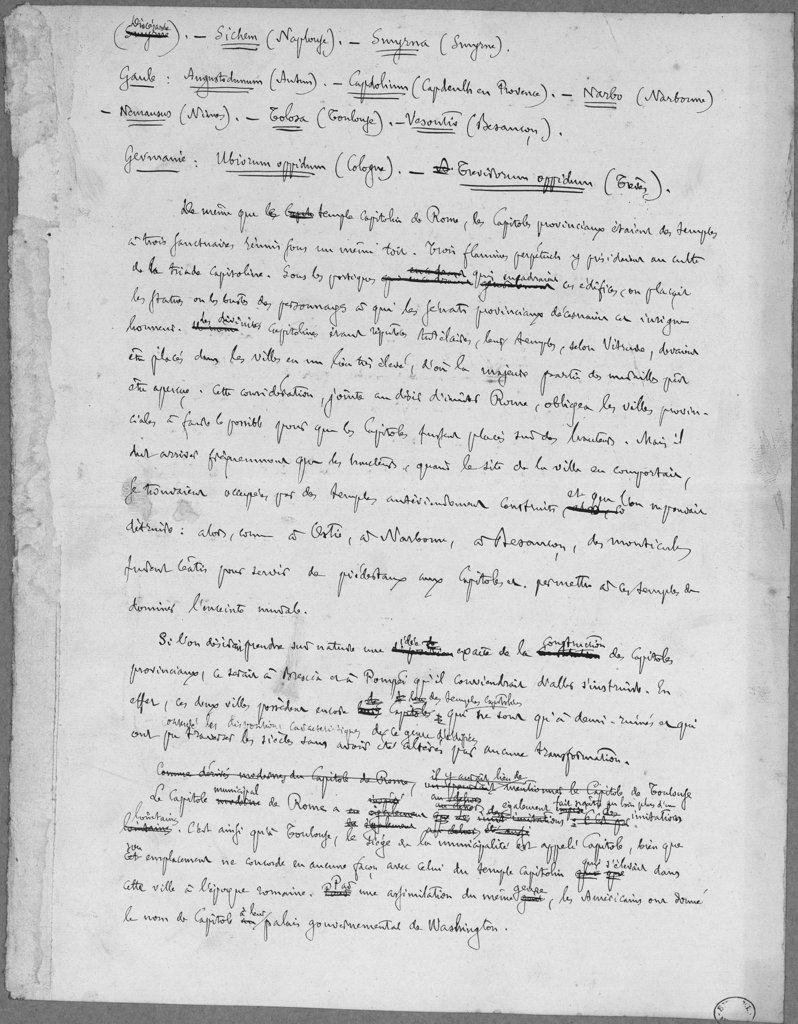 (Diocésarée). — Sichem (Naplouse). — Smyrna (Smyrne).
Gaule : Augustodunum (Autun). — Capdolium (Capdeulh en Provence). — Narbo (Narbonne)
— Nemausus (Nîmes). — Tolosa (Toulouse). — Vesontio (Besançon).
Germanie : Ubiorum oppidum (Cologne). — Trevirorum oppidum (Trèves).
De même que le temple capitolin de Rome, les Capitoles provinciaux étaient des temples
à trois sanctuaires réunis sous un même toit. Trois flamines perpétuels y présidaient au culte
de la triade capitoline. Sous les portiques qui encadraient ces édifices, on plaçait
les statues ou les bustes des personnages à qui les sénats provinciaux décernaient cet insigne
honneur. Les divinités capitolines étant réputées tutélaires, leurs temples, selon Vitruve, devaient
être placés dans les villes en un lieu très élevé, d'où la majeure partie des murailles pût
être aperçue. Cette considération, jointe au désir d'imiter Rome, obligea les villes provin-
ciales à faire le possible pour que les Capitoles fussent placés sur des hauteurs. Mais il
dut arriver fréquemment que les hauteurs, quand le site de la ville en comportait,
se trouvaient occupées par des temples antérieurement construits et que l'on ne pouvait
détruire : alors, comme à Ostie, à Narbonne, à Besançon, des monticules
furent bâtis pour servir de piédestaux aux Capitoles et permettre à ces temples de
dominer l'enceinte murale.
Si l'on désirait prendre sur nature une idée exacte de la construction des Capitoles
provinciaux, ce serait à Brescia et à Pompéi qu'il conviendrait d'aller s'instruire. En
effet, ces deux villes possèdent encore des temples capitolins
qui ne sont qu'à demi-ruinés et qui
ont pu traverser les siècles sans avoir été altérés par aucune transformation.
conservé les dispositions caractéristiques de ce genre d'édifices
Comme dérivés modernes du Capitole de Rome, il y aurait lieu de mentionner le Capitole de Toulouse
Le Capitole municipal de Rome a également fait naître un bien plus d'un imitations
lointaine. C'est ainsi qu'à Toulouse, le siège de la municipalité est appelé Capitole, bien que
son emplacement ne concorde en aucune façon avec celui du temple capitolin qui s'élevait dans
cette ville à l'époque romaine. Par une assimilation du même genre, les Américains ont donné
le nom de Capitole à leur palais gouvernemental de Washington.